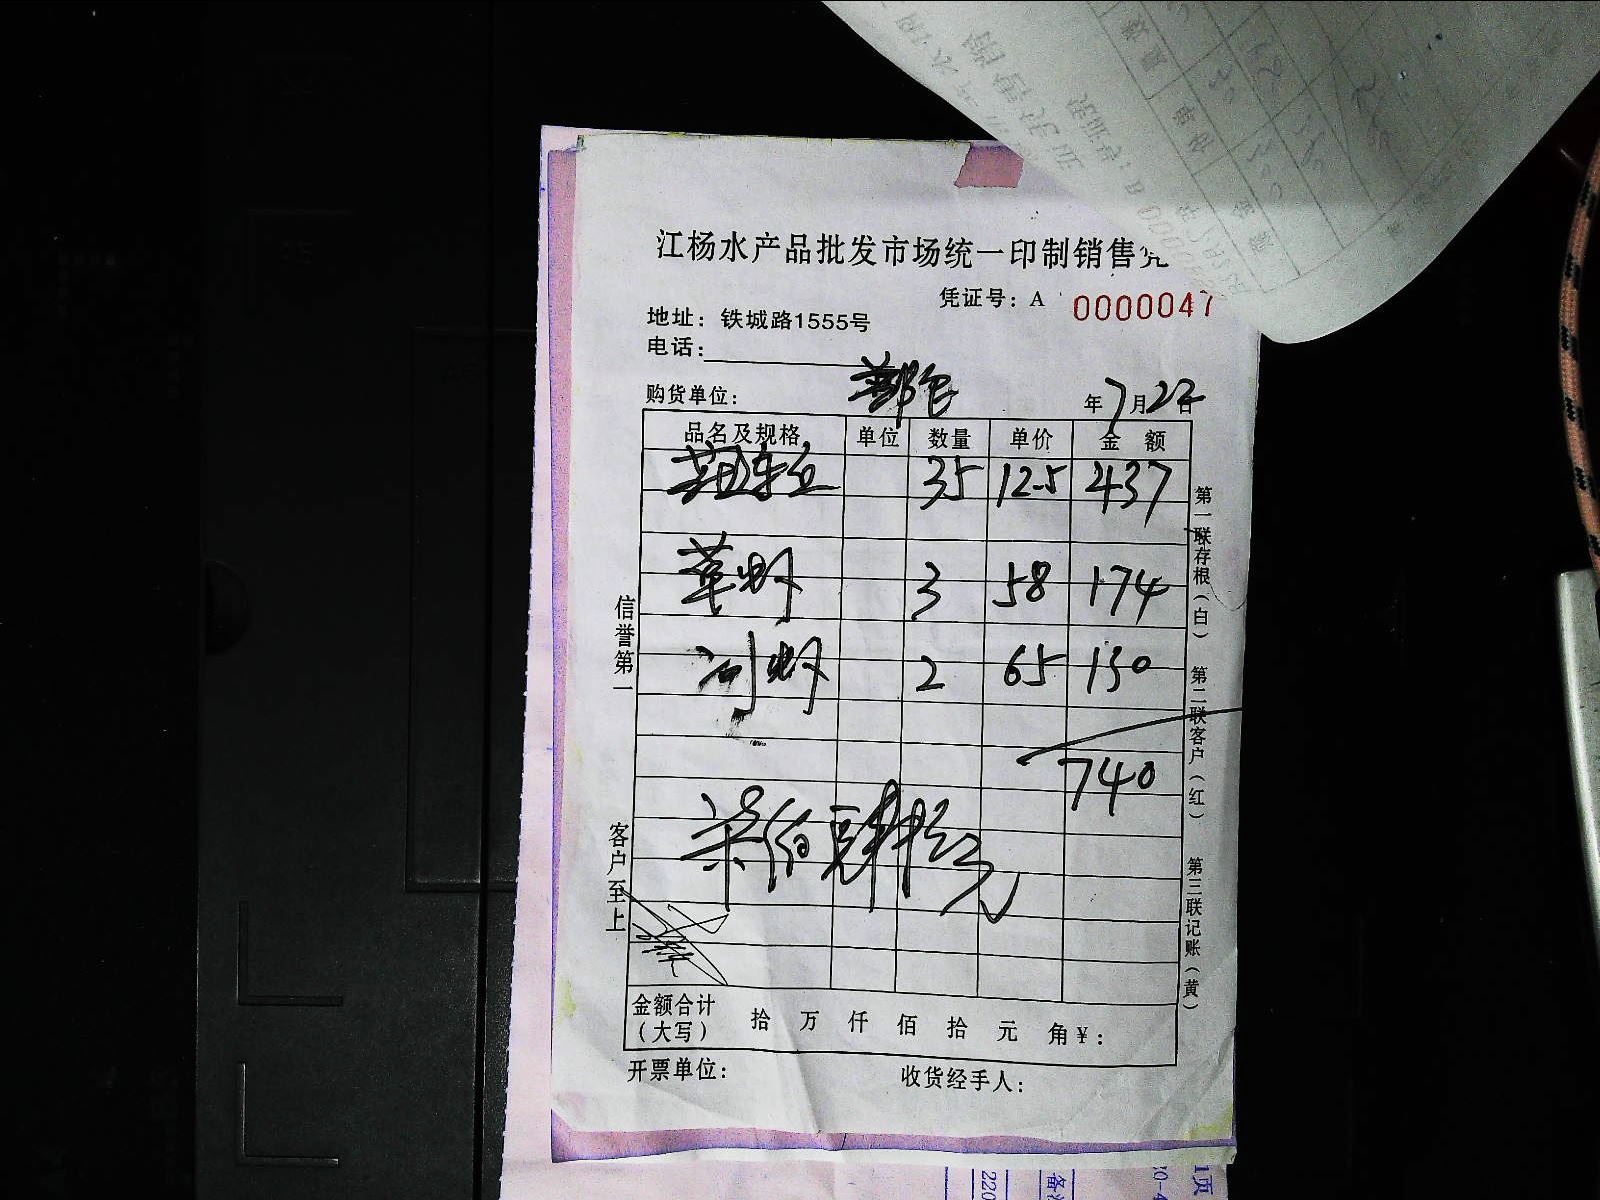 江杨水产品批发市场统一印制销售凭
凭证号：A 0000047
地址：铁城路1555号
电话：
购货单位： 年7月22日
品名及规格 单位 数量 单价 金额
35 12.5 437
草虾 3 58 174
河虾 2 65 130
740
柒佰肆拾元
金额合计（大写） 拾 万 仟 佰 拾 元 角 ¥：
开票单位： 收货经手人：
信誉第一
客户至上
第一联存根（白）
第二联客户（红）
第三联记账（黄）